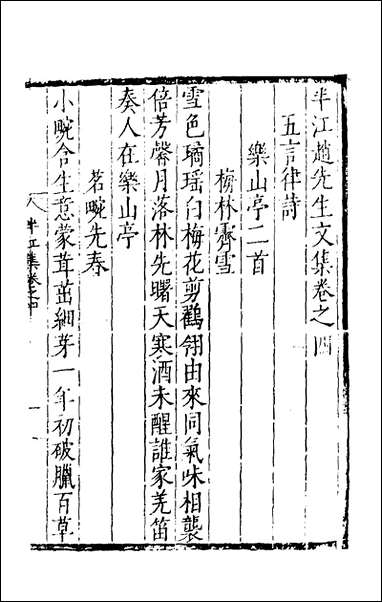 半江趙先生文集卷之四
五言律詩
樂山亭二首
梅林霽雪
雪色摛瑶白梅花剪鸖翎由來同氣味相襲
倍芳馨月落林先曙天寒酒未醒誰家羌笛
奏人在樂山亭
茗畹先春
小畹含生意蒙茸茁細芽一年初破臘百草
半江集卷之四
一